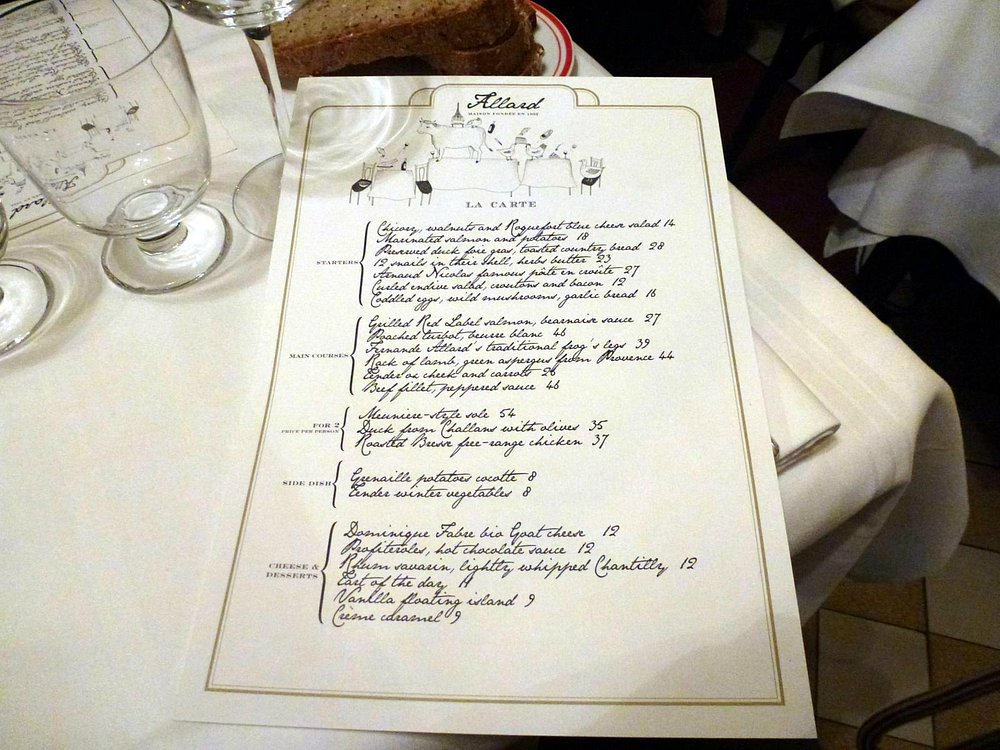 Allard
MAISON FONDÉE EN 1932
LA CARTE
STARTERS
Chicory, walnuts and Roquefort blue cheese salad 14
Marinated salmon and potatoes 18
Preserved duck foie gras, toasted country bread 28
12 snails in their shell, herbs butter 23
Arnaud Nicolas famous pâte en croûte 27
Curled endive salad, croutons and bacon 12
Coddled eggs, wild mushrooms, garlic bread 16
MAIN COURSES
Grilled Red Label salmon, bearnaise sauce 27
Poached turbot, beurre blanc 46
Fernande Allard's traditional frog's legs 39
Rack of lamb, green aspergus from Provence 44
Tender ox cheek and carrots 26
Beef fillet, peppered sauce 46
FOR 2
PRICE PER PERSON
Meuniere-style sole 54
Duck from Challans with olives 35
Roasted Bresse free-range chicken 37
SIDE DISH
Grenaille potatoes cocotte 8
Tender winter vegetables 8
CHEESE &
DESSERTS
Dominique Fabre bio Goat cheese 12
Profiteroles, hot chocolate sauce 12
Rhum savarin, lightly whipped Chantilly 12
Tart of the day 11
Vanilla floating island 9
Crème caramel 9